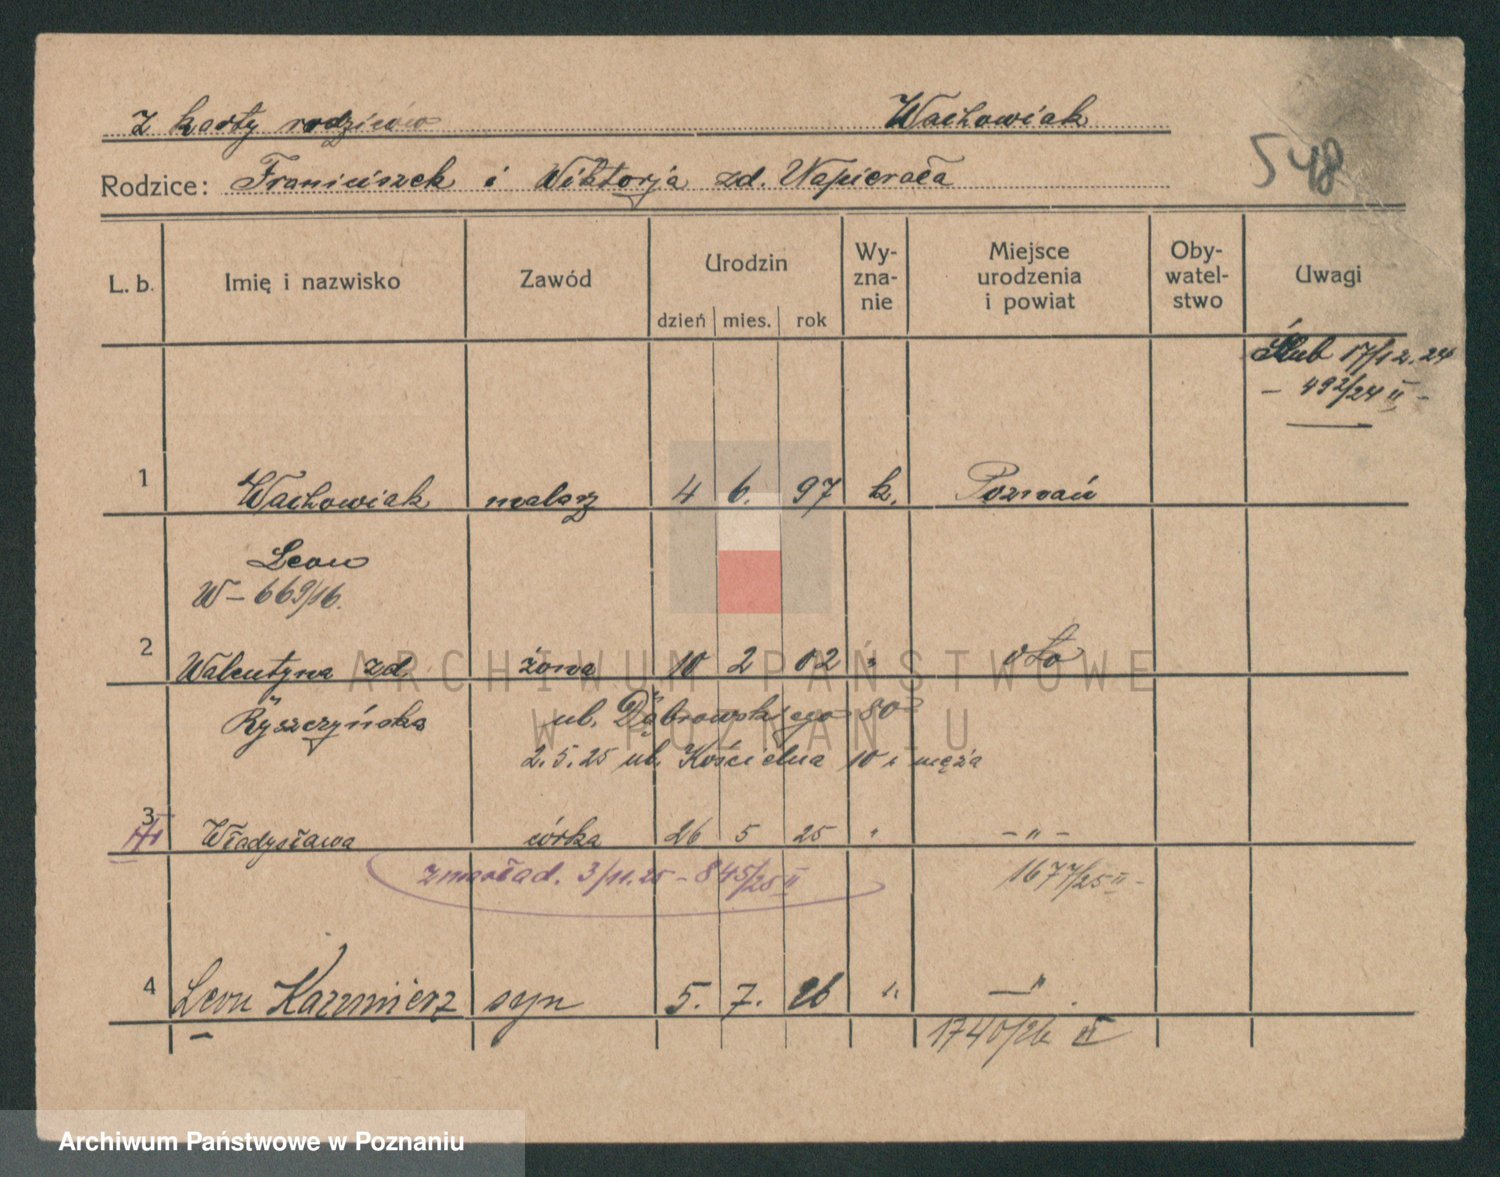 Z karty rodziców Wachowiak
548
Rodzice: Franciszek i Wiktorja zd. Napierała
L. b. Imię i nazwisko Zawód Urodzin dzień mies. rok Wy-zna-nie Miejsce urodzenia i powiat Oby-watel-stwo Uwagi
Ślub 17/12.24
- 492/24 II -
1 Wachowiak malarz 4 6. 97 k. Poznań
Leon
W - 669/16.
2 Walentyna zd. żona 10 2 02 " dto
Ryszczyńska ul. Dąbrowskiego 80
2.5.25 ul. Kościelna 10 u męża
3 Władysława córka 26 5 25 " - " -
zmarła d. 3/11.25 - 845/25 II 1677/25 II -
4 Leon Kazimierz syn 5. 7. 26 " — " .
1740/26 II
ARCHIWUM PAŃSTWOWE
W POZNANIU
Archiwum Państwowe w Poznaniu